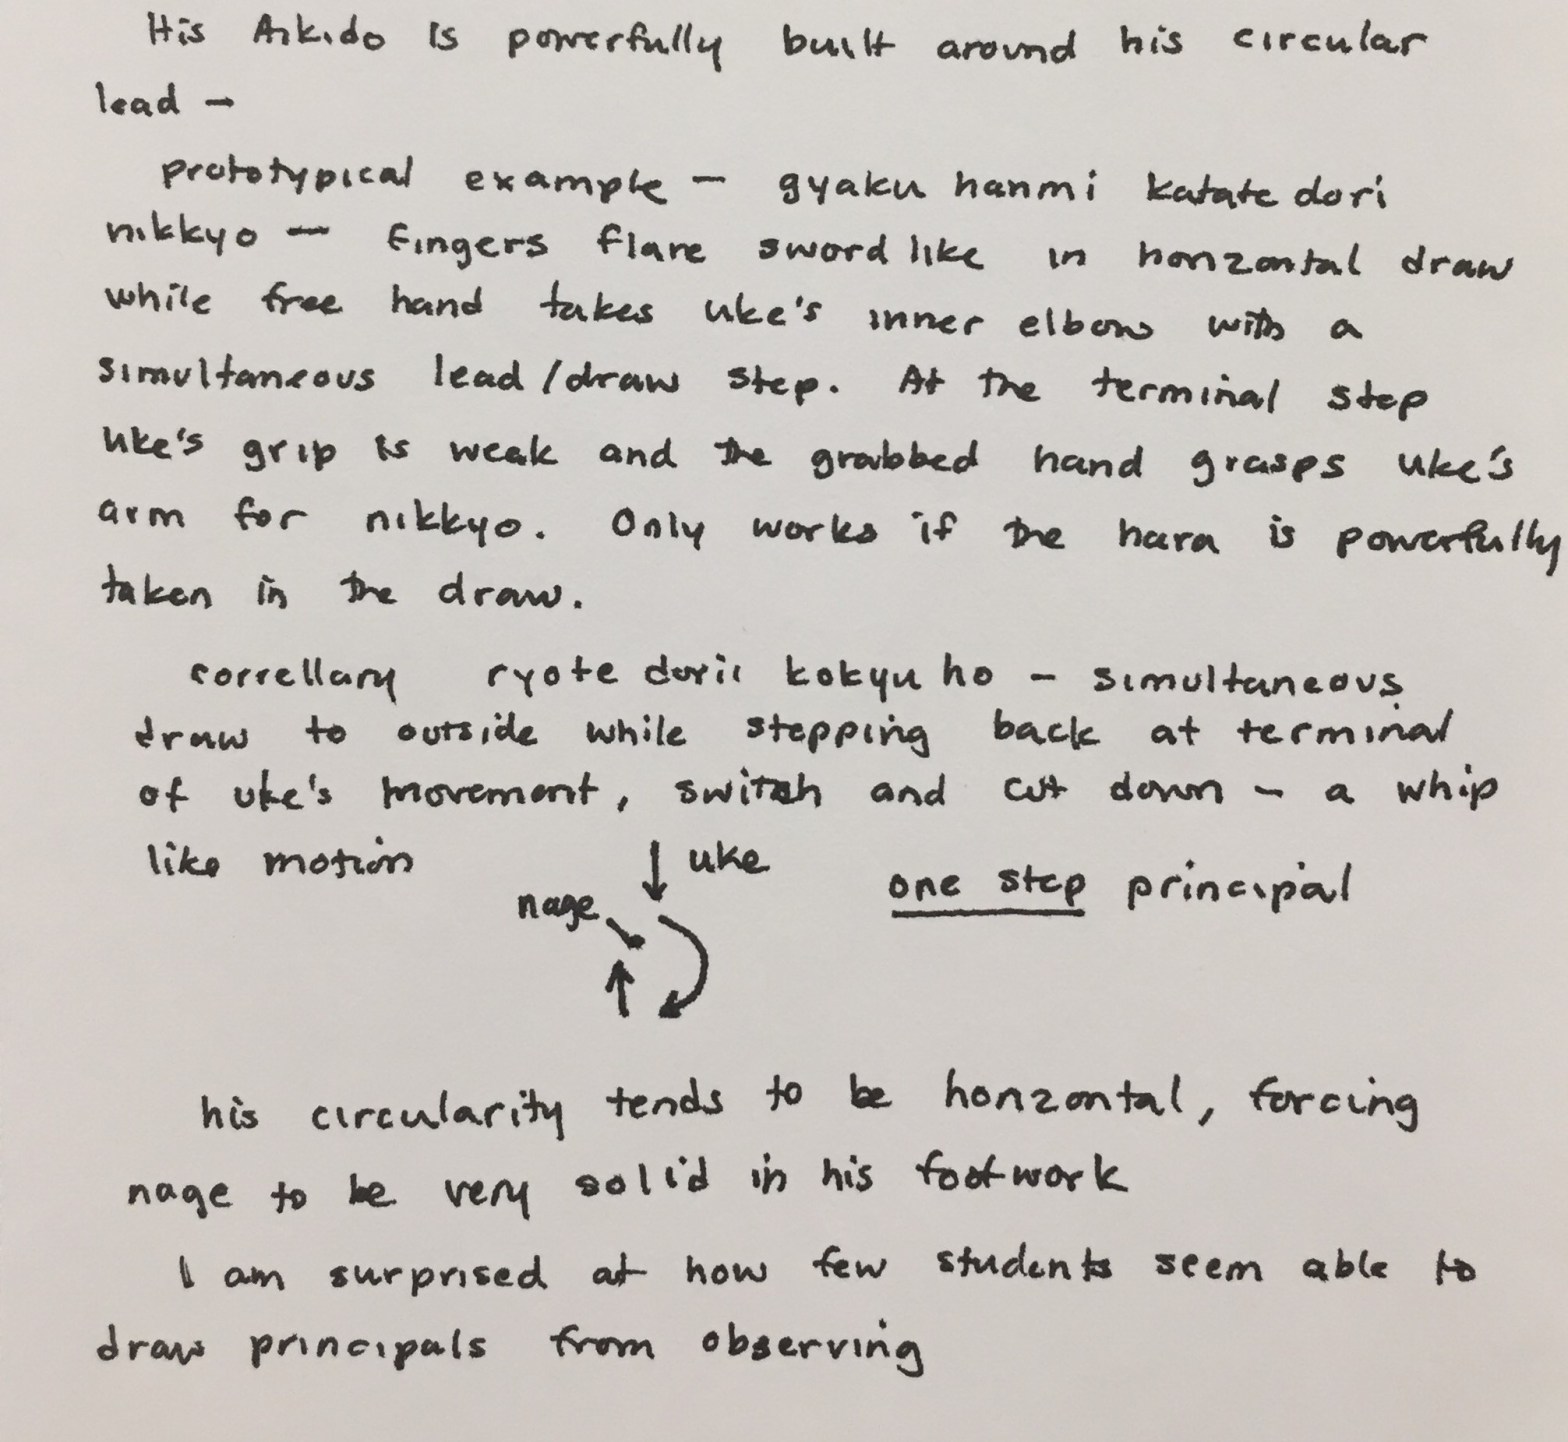 His Aikido is powerfully built around his circular
lead –
prototypical example – gyaku hanmi katate dori
nikkyo – fingers flare sword like in horizontal draw
while free hand takes uke's inner elbow with a
simultaneous lead/draw step. At the terminal step
uke's grip is weak and the grabbed hand grasps uke's
arm for nikkyo. Only works if the hara is powerfully
taken in the draw.
correllary ryote dorii kokyu ho – simultaneous
draw to outside while stepping back at terminal
of uke's movement, switch and cut down – a whip
like motion
uke
nage
one step principal
his circularity tends to be horizontal, forcing
nage to be very solid in his footwork
I am surprised at how few students seem able to
draw principals from observing